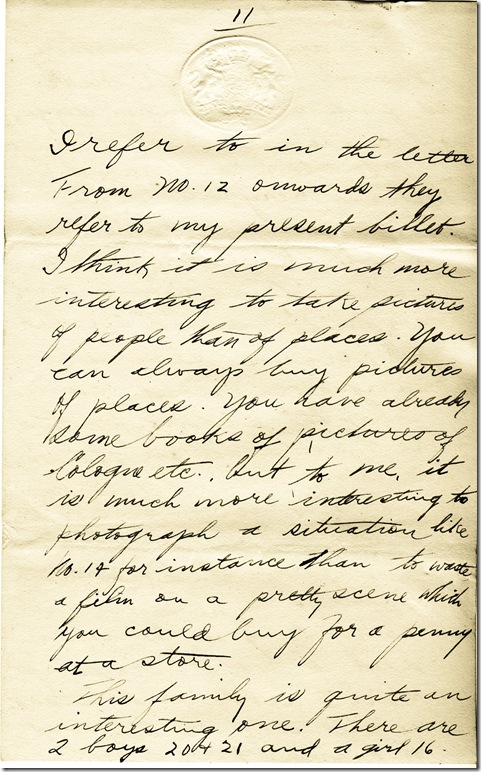 11
I refer to in the letter
From no. 12 onwards they
refer to my present billet.
I think it is much more
interesting to take pictures
of people than of places. You
can always buy pictures
of places. You have already
some books of pictures of
Cologne etc., but to me, it
is much more interesting to
photograph a situation like
no. 14 for instance than to waste
a film on a pretty scene which
you could buy for a penny
at a store.
This family is quite an
interesting one. There are
2 boys 20 & 21 and a girl 16.